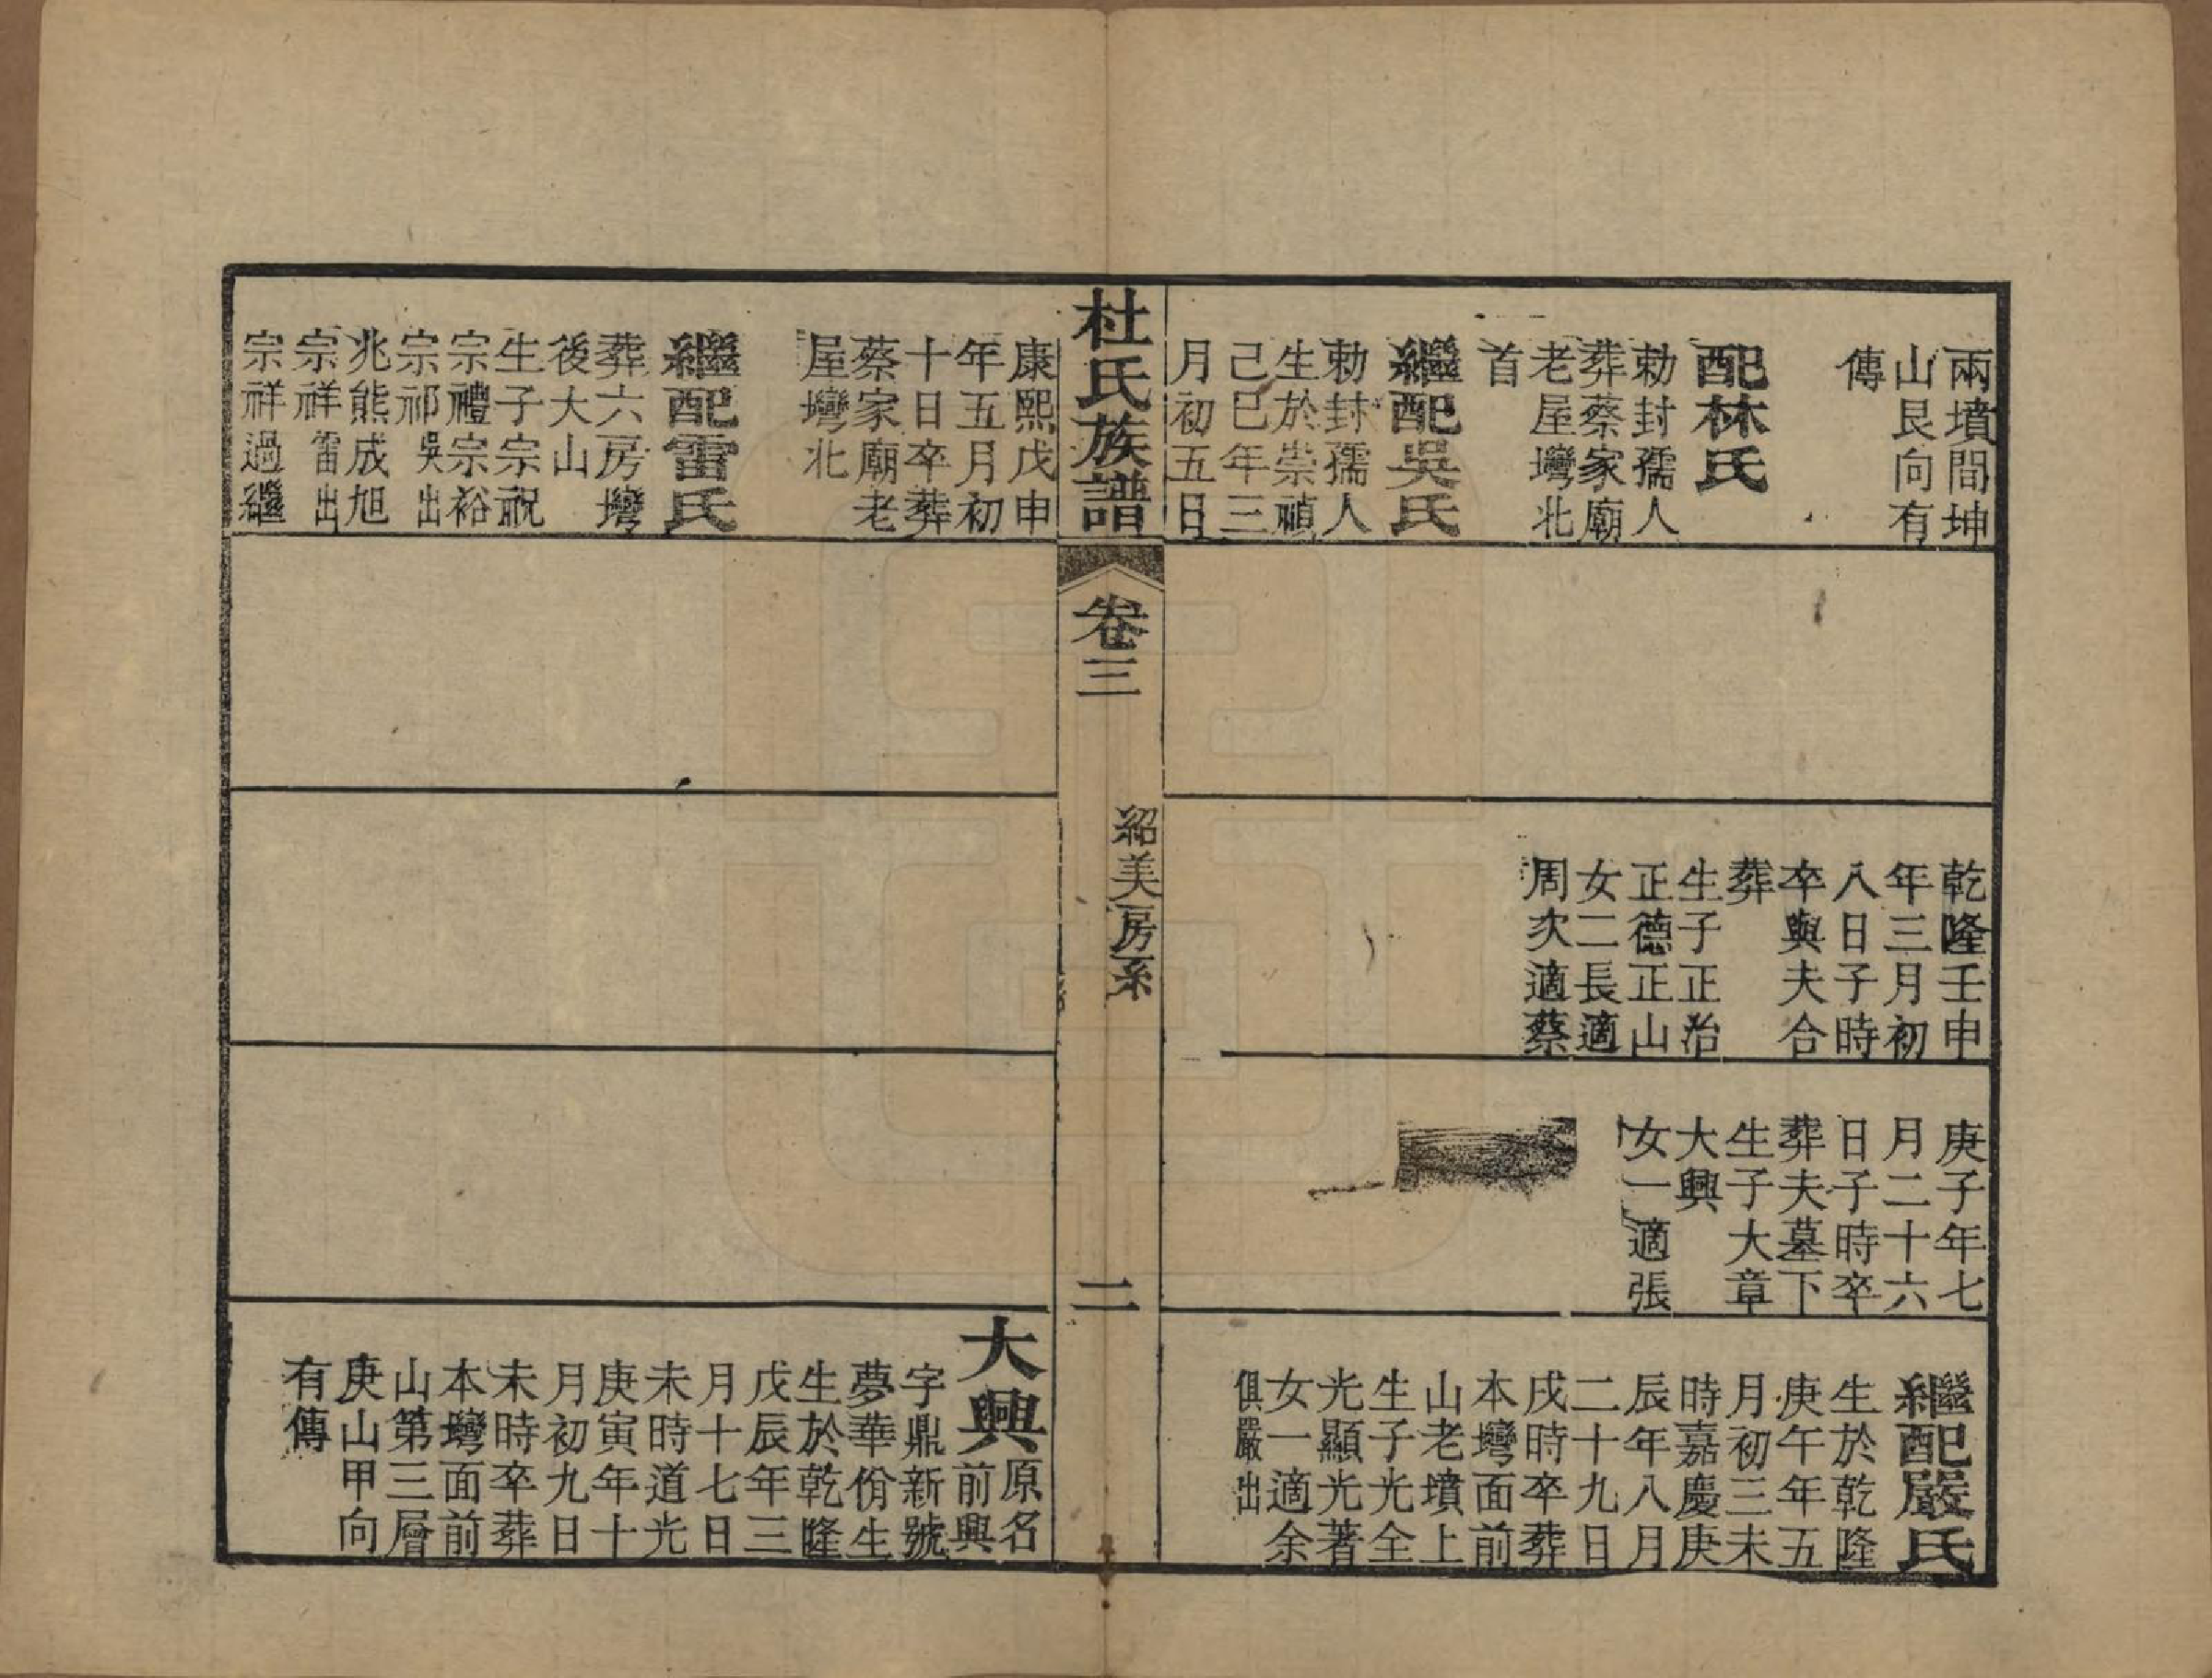 兩墳間坤
山艮向有
傳
配林氏
勅封孺人
葬蔡家廟
老屋灣北
首
繼配吳氏
勅封孺人
生於崇禎
己巳年三
月初五日
乾隆壬申
年三月初
八日子時
卒與夫合
葬
生子正治
正德正山
女二長適
周次適蔡
庚子年七
月二十六
日子時卒
葬夫墓下
生子大章
大興
女一適張
繼配嚴氏
生於乾隆
庚午年五
月初三未
時嘉慶庚
辰年八月
二十九日
戌時卒葬
本灣面前
山老墳上
生子光全
光顯光著
女一適余
俱嚴出
杜氏族譜
卷三
紹美房系
二
康熙戊申
年五月初
十日卒葬
蔡家廟老
屋灣北
繼配雷氏
葬六房灣
後大山
生子宗祝
宗禮宗裕
宗祁吳出
兆熊成旭
宗祥雷出
宗祥過繼
大興原名
前興
字鼎新號
夢華佾生
生於乾隆
戊辰年三
月十七日
未時道光
庚寅年十
月初九日
未時卒葬
本灣面前
山第三層
庚山甲向
有傳